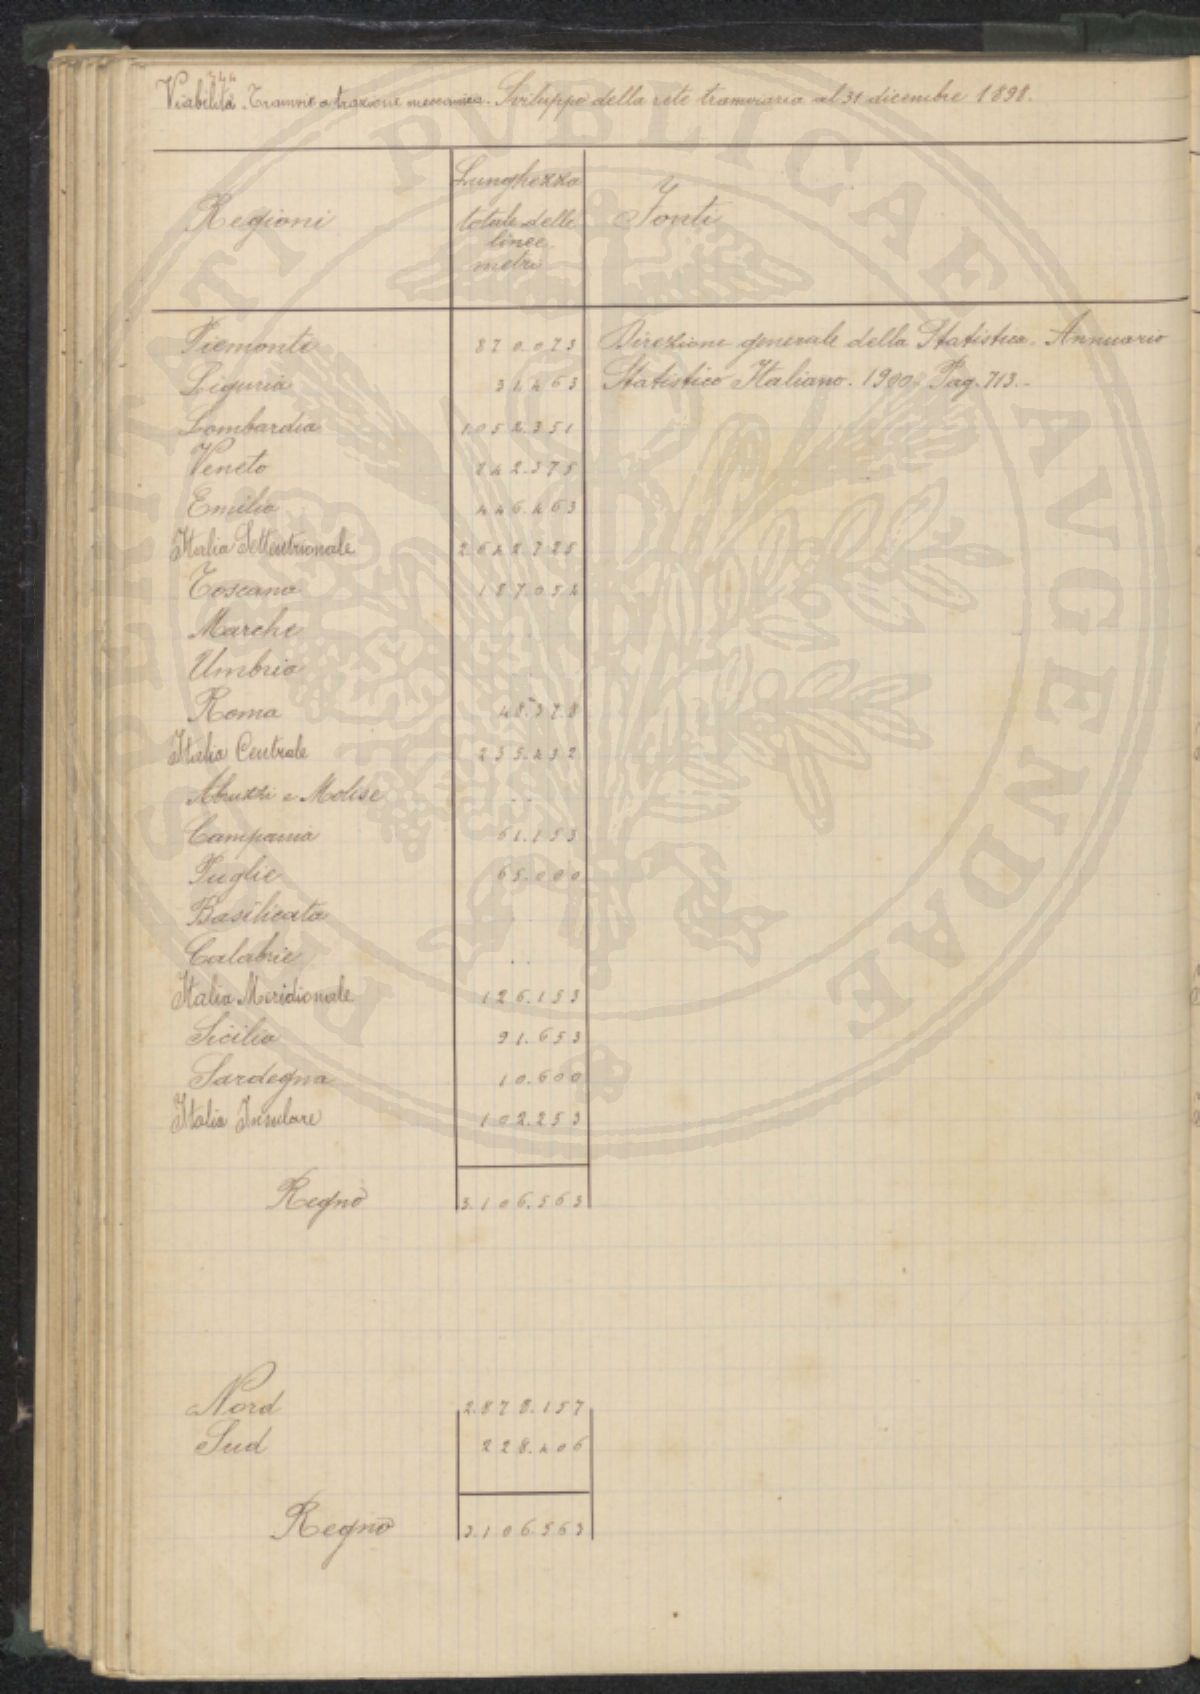 344
Viabilità. Tramvie a trazione meccanica. Sviluppo della rete tramviaria al 31 dicembre 1898.
Regioni
Lunghezza
totale delle
linee
metri
Fonti
Piemonte 870.073 Direzione generale della Statistica. Annuario
Liguria 31.463 Statistico Italiano. 1900. Pag. 713.-
Lombardia 1.052.351
Veneto 242.375
Emilia 446.463
Italia Settentrionale 2642.725
Toscana 187.054
Marche ..
Umbria ..
Roma 48.378
Italia Centrale 235.432
Abruzzi e Molise ..
Campania 61.153
Puglie 65.000
Basilicata ..
Calabrie ..
Italia Meridionale 126.153
Sicilia 91.653
Sardegna 10.600
Italia Insulare 102.253
Regno 3.106.563
Nord 2.878.157
Sud 228.406
Regno 3.106.563
PROSPERITATI PVBLICAE AVGENDAE